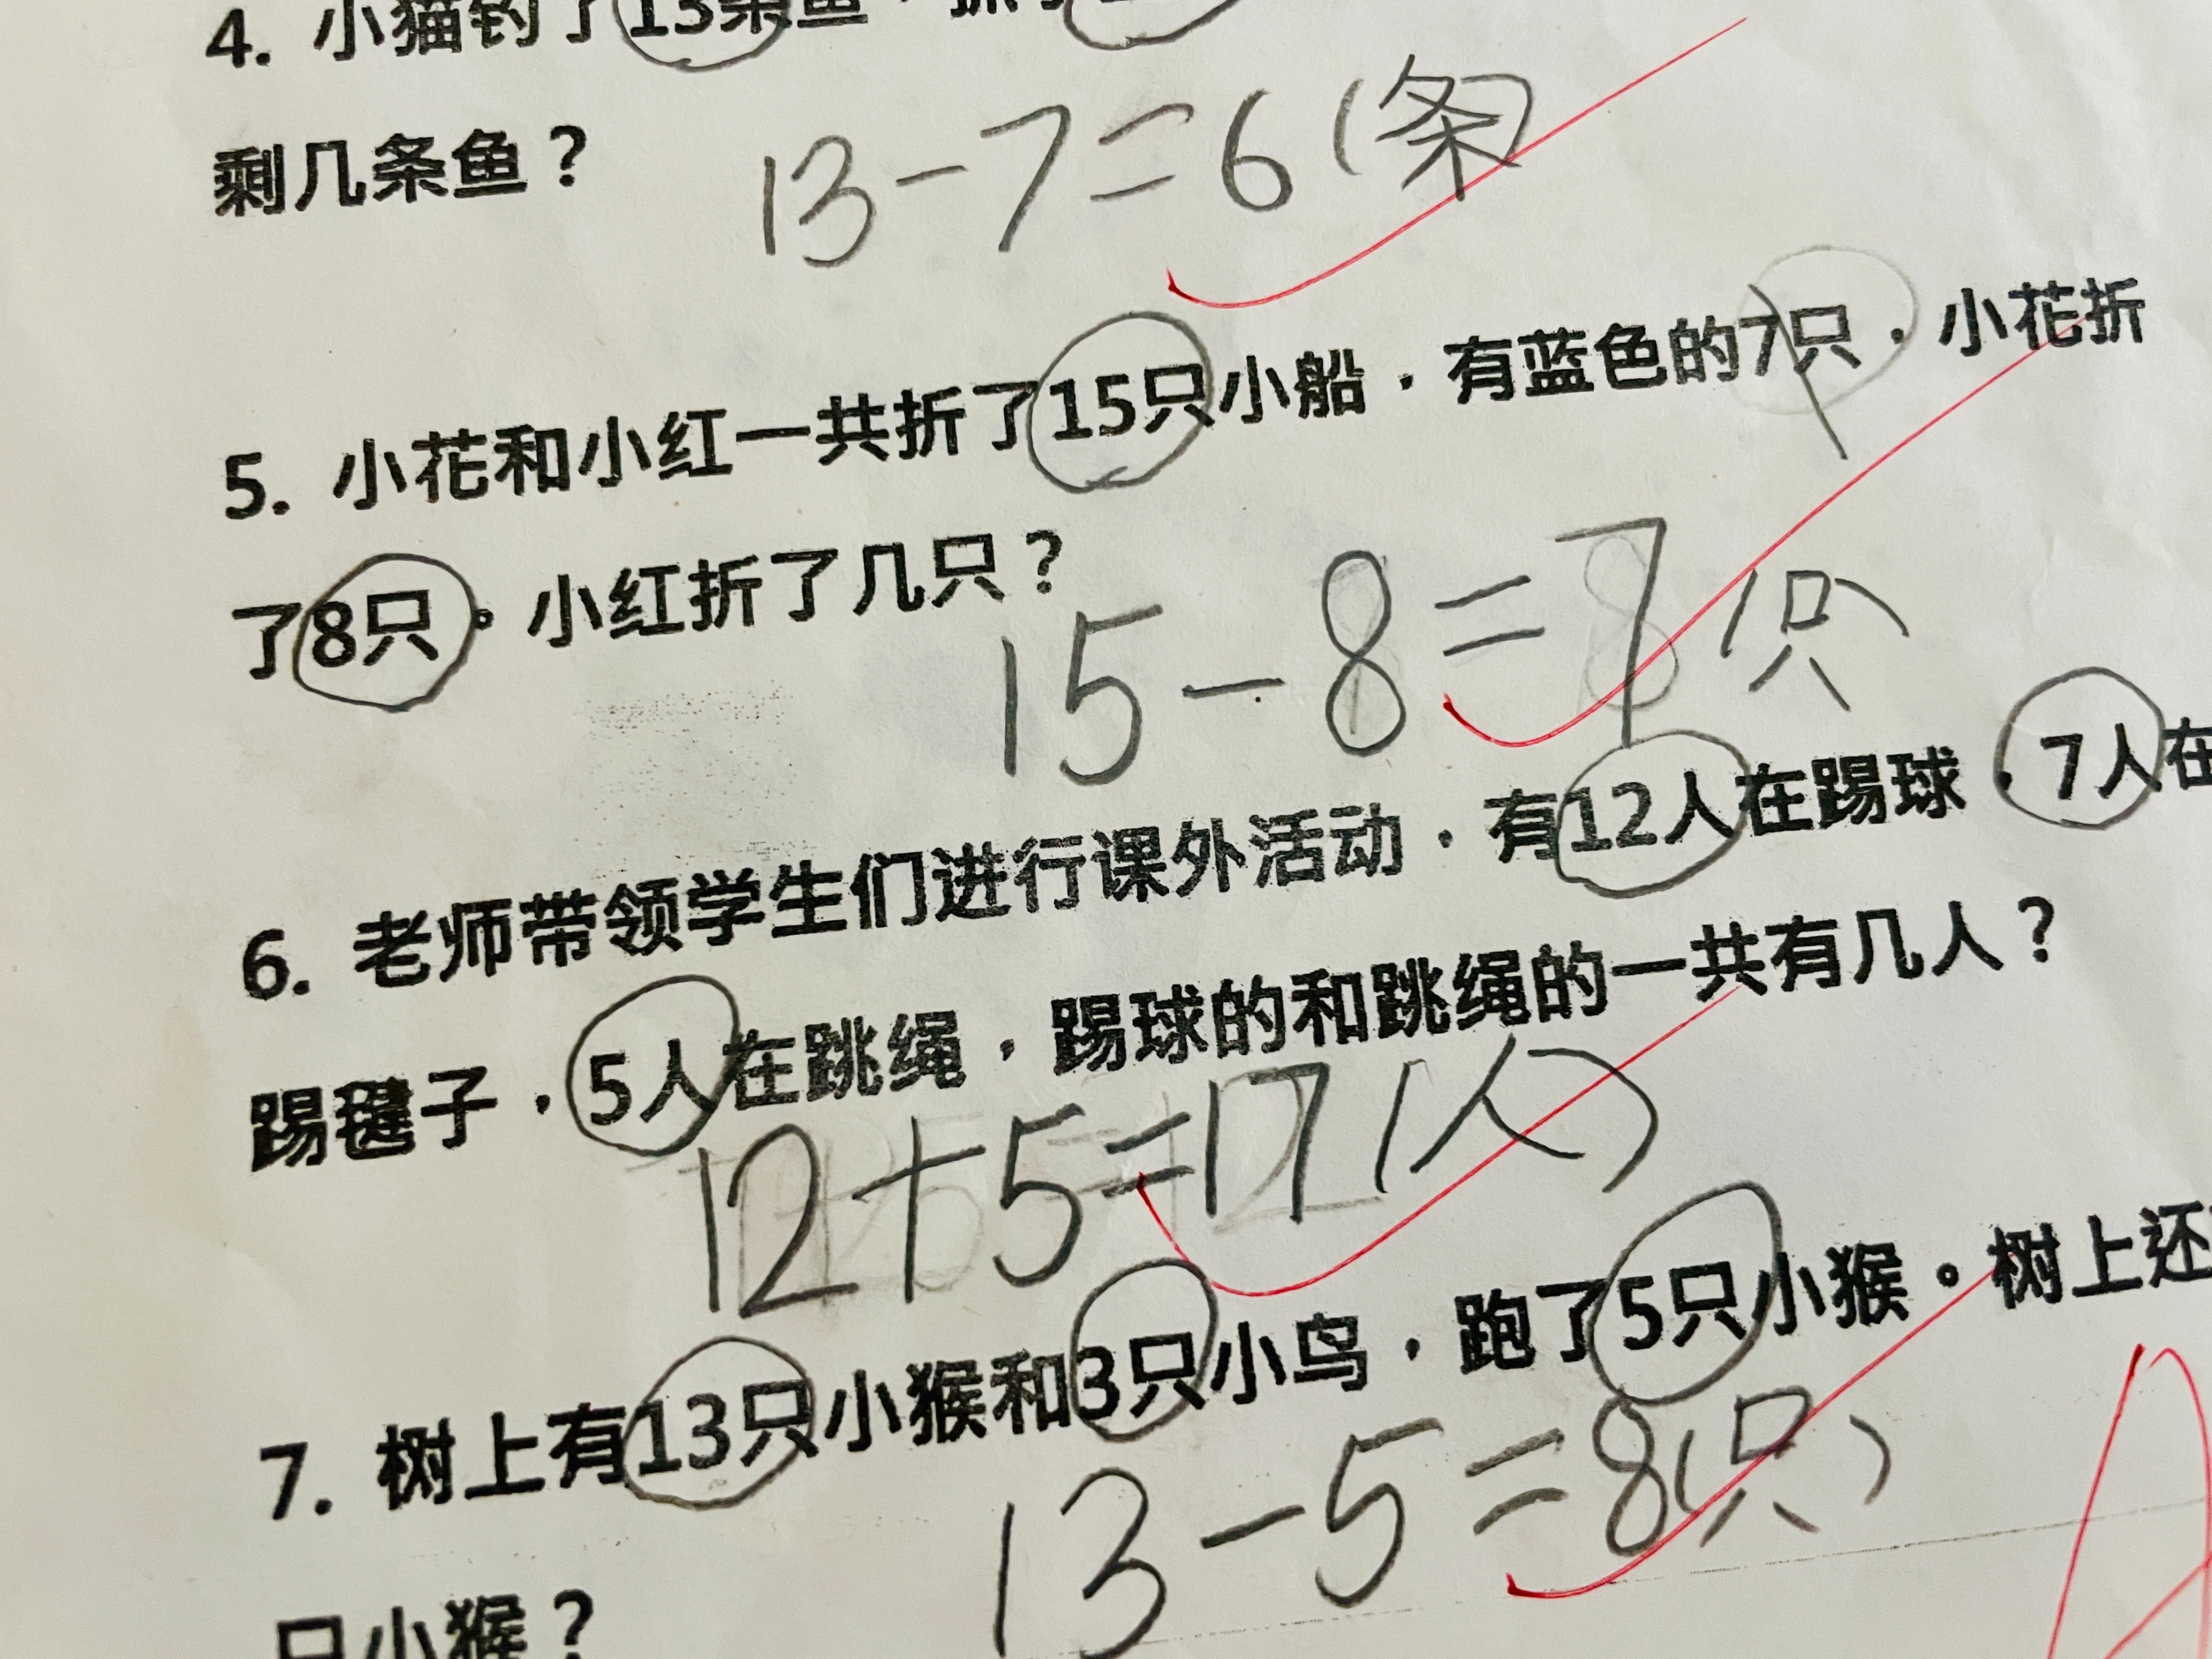 4. 小猫钓了13条鱼，
剩几条鱼？
13-7=6(条)
5. 小花和小红一共折了15只小船，有蓝色的7只，小花折
了8只。小红折了几只？
15-8=7(只)
6. 老师带领学生们进行课外活动，有12人在踢球，7人在
踢毽子，5人在跳绳，踢球的和跳绳的一共有几人？
12+5=17(人)
7. 树上有13只小猴和3只小鸟，跑了5只小猴。树上还
只小猴？
13-5=8(只)
A